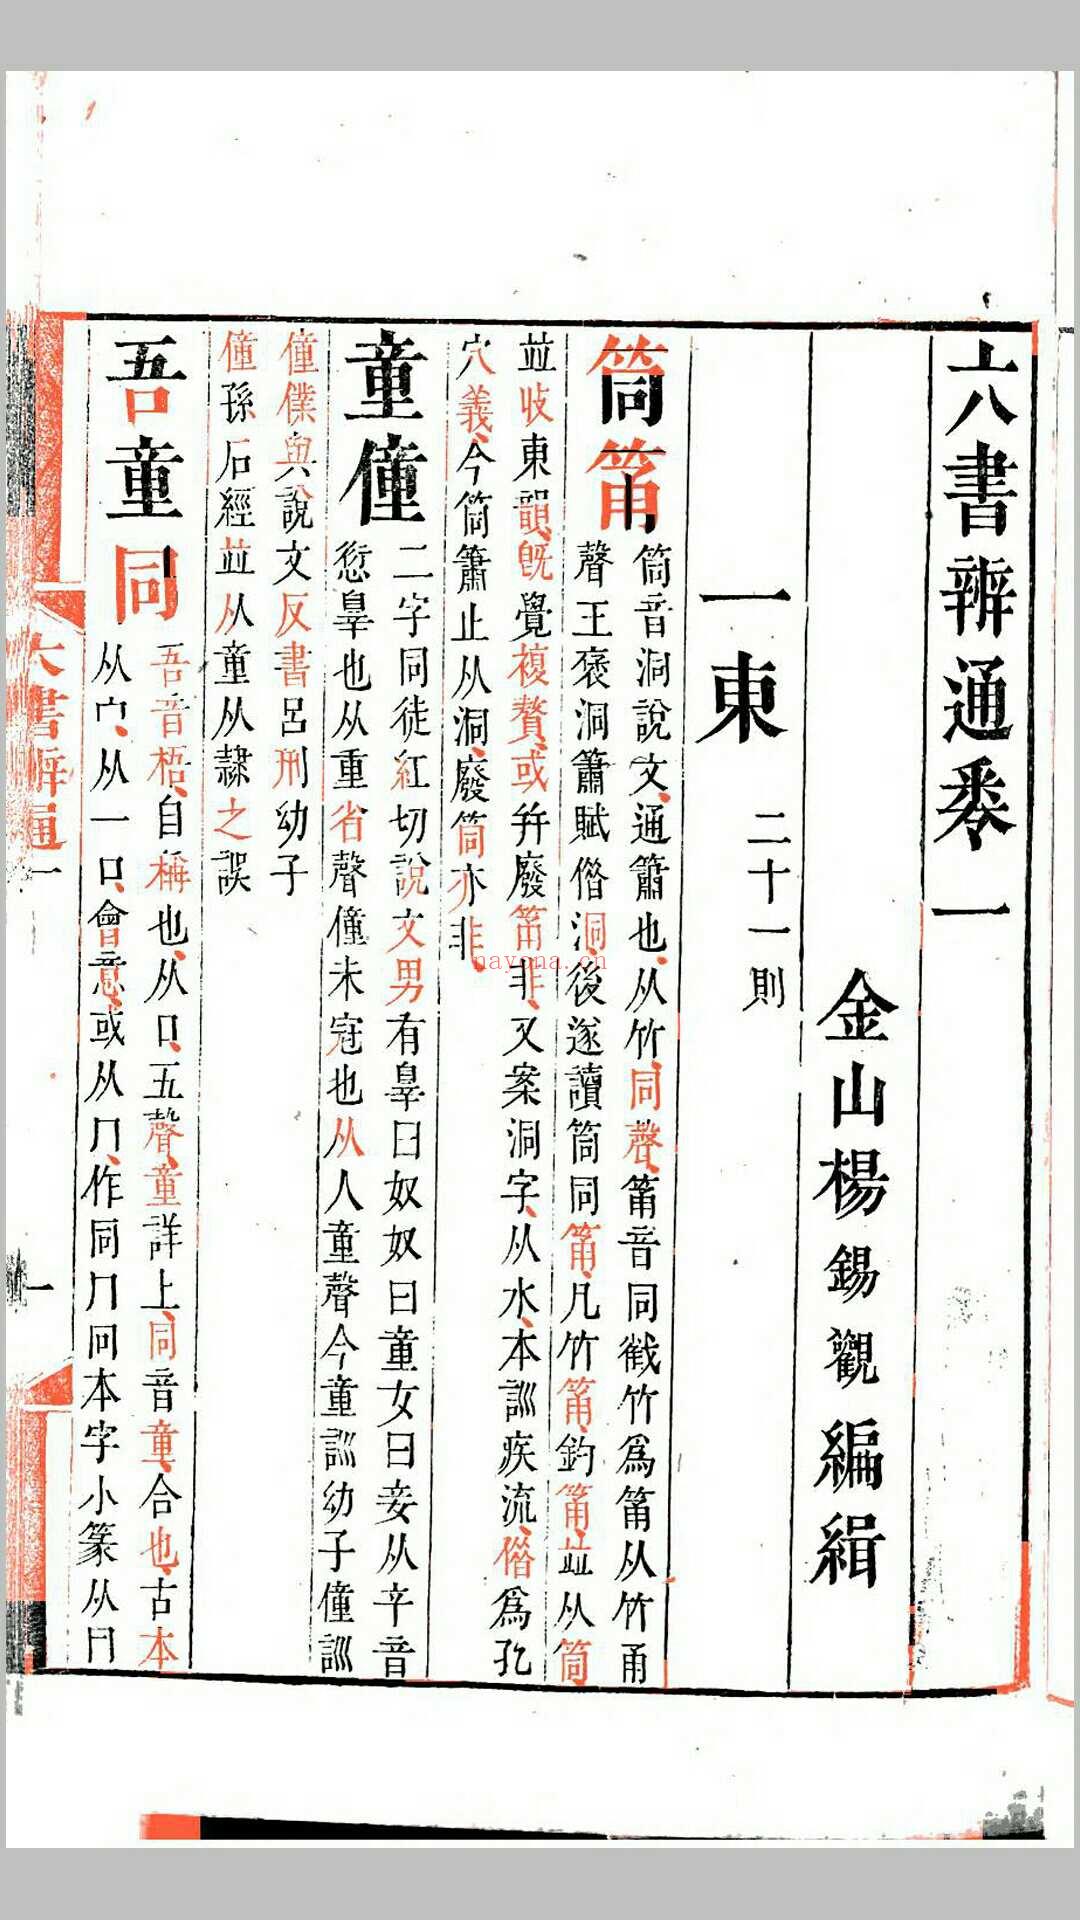 六書辨通卷一
金山楊錫觀編緝
一東 二十一則
筒筩
筒音洞說文通簫也从竹同聲筩音同戳竹爲筩从竹甬
聲王褒洞簫賦偺洞後遂讀筒同筩凡竹筩釣筩並从筒
並收東韻旣覺複贅或幷廢筩非又案洞字从水本訓疾流偺爲孔
穴義今筒簫止从洞廢筒亦非
童僮
二字同徒紅切說文男有辠曰奴奴曰童女曰妾从䇂音
愆辠也从重省聲僮未冠也从人童聲今童訓幼子僮訓
僮僕與說文反書呂刑幼子
僮孫石經並从人童从隷之誤
吾童同
吾音梧自稱也从口五聲童詳上同音童合也古本
从冖从一口會意或从冂作同冂冋本字小篆从冃
六書辨通一
一
nayona.cn